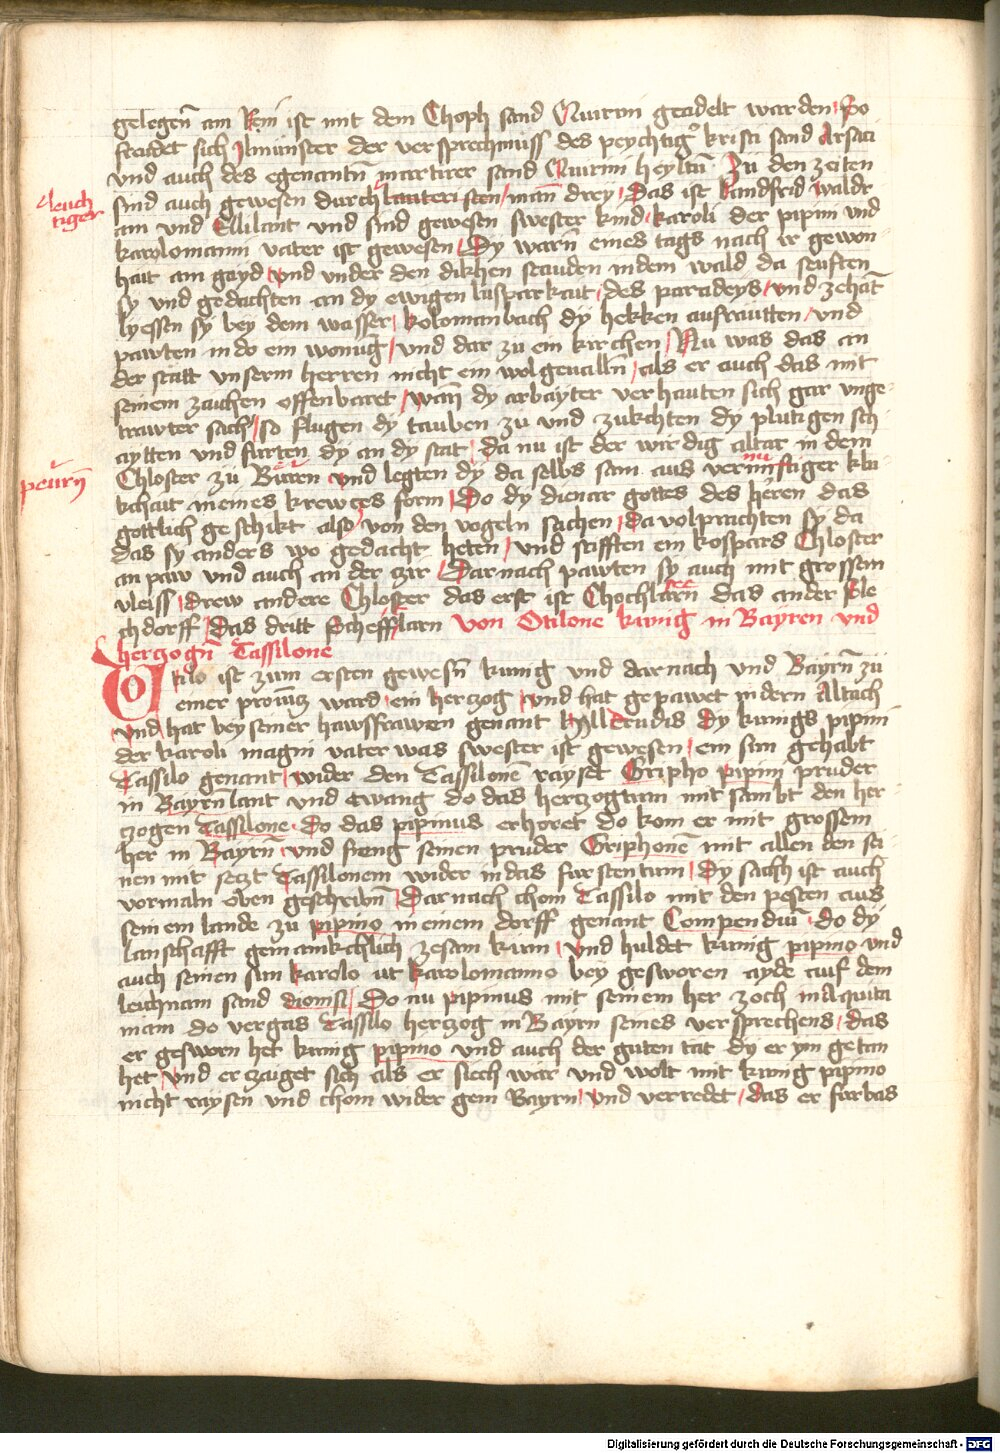 gelegen̄ am Rein ist mit dem Choph sand Quirini geadelt warden So
frewdet sich Ilmünster der versprechnuss des peychtig̉ kristi sand Arsaci
vnd auch des egenantn̄ martirer sand Quirini heyltū Zu den zeiten
sind auch gewesen durchlauteristen man̄ drey Das ist landfrid waldr
leuch
tiger
am vnd Ellilant vnd sind gewesen swester kind karoli der pipini vnd
karolomanni vater ist gewesen Dy warn̄ eines tags nach ir gewon
hait am gayd vnd vnder den dikhen stauden in dem wald da seuften
sy vnd gedachten an dy ewigen lusparkait des paradeys vnd zehāt
lyessen sy bey dem wasser kolomanbach dy hekken ausrautten vnd
pawten in do ein wonūg vnd dar zu ein kirchen Nu was das an
der statt vnserm herren nicht ein wolgeualln̄ als er auch das mit
seinem zaichen offenbaret wan̄ dy arbayter verhauten sich gar vnge
trawter sach so flugen dy tauben zu vnd zukchten dy plutigen sch
aytten vnd furten dy an dy stat da nu ist der wirdig altar in dem
Chloster zu Büren vnd legten dy da selbs sam aus vernunftiger klu
peürn̄
kchait in eines krewczs form Do dy dienar gottes des herēn das
gottlich geschikt also von den vogeln sachen da volprachten sy da
das sy anders wo gedacht heten vnd stifften ein kospars Chloster
an paw vnd auch an der zir Darnach pawten sy auch mit grossem
vleiss drew andere Chloster das erst ist Chochlarn̄ see das ander Sle
chdorff Das dritt Schefftlarn von Otilone kunig in Bayren vnd
herczogn̄ Tassilone
Otilo ist zum ersten gewesn̄ kunig vnd darnach vnd Bayrn̄ zu
einer prouincz ward ein herczog vnd hat gepawet in dern Altach
vnd hat bey seiner hawssfrawen genant hylltrudis Dy kunigs pipini
der karoli magni vater was swester ist gewesen ein sun gehabt
Tassilo genant wider den Tassilonē rayset Gripho pipini pruder
in Bayrn̄lant vnd twang do das herczogtum mit sambt den her
czogen Tassilone Do das pipinus erhoret do kom er mit grossem
her in Bayrn̄ vnd fieng seinen pruder Griphonē mit allen den sei
nen mit seczt Tassilonem wider in das furstentum Dy sach ist auch
vormaln oben geschribn̄ Darnach chom Tassilo mit den pesten aus
seinem lande zu pipino in einem dorff genant Compendiū do dy
lanschafft gemainkchlich zesam kam vnd huldet kunig pipino vnd
auch seinen sun karolo vt karolomanno bey gesworen ayde auf dem
leichnam sand dionisi Do nu pipinus mit seinem her zoch in Aquita
niam do vergas Tassilo herczog in Bayrn seines versprechens das
er gesworn het kunig pipino vnd auch der guten tat dy er ym getan
het vnd erzaiget sich als er siech wär vnd wolt mit kunig pipino
nicht raysen vnd chom wider gem Bayrn vnd verredet das er furbas
Digitalisierung gefördert durch die Deutsche Forschungsgemeinschaft - DFG